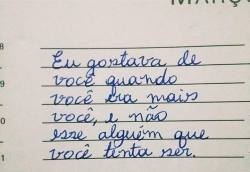 Eu gostava de
você quando
você era mais
você, e não
esse alguém que
você tenta ser.